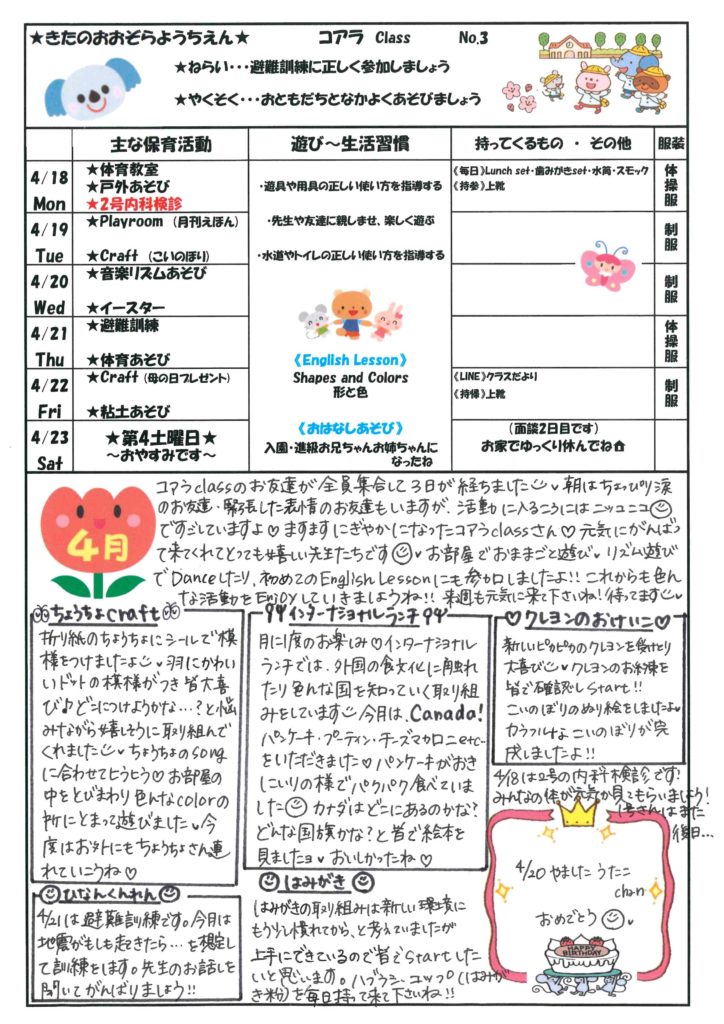 ★きたのおおぞらようちえん★ コアラ Class No.3
★ねらい・・・避難訓練に正しく参加しましょう
★やくそく・・・おともだちとなかよくあそびましょう
主な保育活動 遊び～生活習慣 持ってくるもの ・ その他 服装
4/18 Mon
★体育教室
★戸外あそび
★2号内科検診
《毎日》Lunch set・歯みがきset・水筒・スモック
《持参》上靴
体操服
4/19 Tue
★Playroom （月刊えほん）
★Craft （こいのぼり）
制服
4/20 Wed
★音楽リズムあそび
★イースター
制服
4/21 Thu
★避難訓練
★体育あそび
体操服
4/22 Fri
★Craft （母の日プレゼント）
★粘土あそび
《LINE》クラスだより
《持帰》上靴
制服
4/23 Sat
★第4土曜日★
～おやすみです～
（面談2日目です）
お家でゆっくり休んでね
・遊具や用具の正しい使い方を指導する
・先生や友達に親しませ、楽しく遊ぶ
・水道やトイレの正しい使い方を指導する
《English Lesson》
Shapes and Colors
形と色
《おはなしあそび》
入園・進級お兄ちゃんお姉ちゃんに
なったね
4月
コアラclassのお友達が全員集合して3日が経ちました 朝はちょっぴり涙
のお友達・緊張した表情のお友達もいますが、活動に入るころにはニッコニコ
ですごしていますよ♡ますますにぎやかになったコアラclassさん♡元気にがんばっ
て来てくれてとっても嬉しい先生たちです お部屋でおままごと遊び リズム遊び
でDanceしたり、初めてのEnglish Lessonにも参加しましたよ!!これからも色ん
な活動をEnjoyしていきましょうね!!来週も元気に来て下さいね!待ってます
ちょうちょcraft
折り紙のちょうちょにシールで模
様をつけましたよ 羽にかわい
いドットの模様がつき皆大喜
び♪どこにつけようかな…?と悩
みながら嬉しそうに取り組んで
くれました ちょうちょのsong
に合わせてヒラヒラ♡お部屋の
中をとびまわり色んなcolorの
所にとまって遊びました 今
度はお外にもちょうちょさん連
れていこうね♡
インターナショナルランチ
月に1度のお楽しみ♡インターナショナル
ランチでは、外国の食文化に触れ
たり色んな国を知っていく取り組
みをしています 今月は、Canada!
パンケーキ・プーティン・チーズマカロニetc…
をいただきました パンケーキがおき
にいりの様でパクパク食べていま
した カナダはどこにあるのかな?
どんな国旗かな?と皆で絵本を
見ましたヨ おいしかったね♡
♡クレヨンのおけいこ♡
新しいピカピカのクレヨンを受けとり
大喜び クレヨンのお約束を
皆で確認しStart!!
こいのぼりのぬり絵をしましたよ
カラフルなこいのぼりが完
成しましたよ!!
4/18は2号の内科検診です?
みんなの体が元気か見てもらいましょう!
1号さんはまた
後日…
ひなんくんれん
4/21は避難訓練です。今月は
地震がもしも起きたら…を想定
して訓練をします。先生のお話を
聞いてがんばりましょう!!
はみがき
はみがきの取り組みは新しい環境に
もう少し慣れてから、と考えていましたが
上手にできているので皆でstartした
いと思います。ハブラシ、コップ（はみが
き粉）を毎日持って来て下さいね!!
4/20 やました うたこ
chan
おめでとう
HAPPY
BIRTHDAY